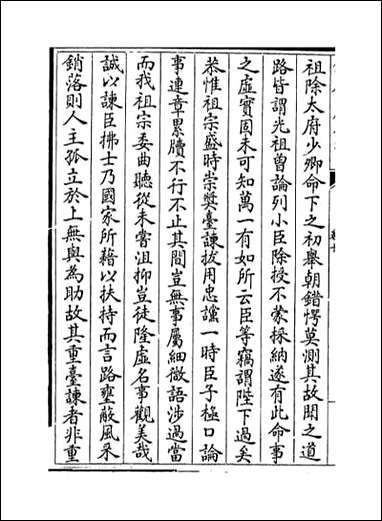 祖除太府少卿命下之初舉朝錯愕莫測其故聞之道
路皆謂光祖曽論列小臣除授不蒙採納遂有此命事
之虛實固未可知萬一有如所云臣等竊謂陛下過矣
恭惟祖宗盛時崇奬臺諫拔用忠讜一時臣子極口論
事連章累牘不行不止其間豈無事屬細微語涉過當
而我祖宗委曲聽從未嘗沮抑豈徒隆虛名事觀美哉
誠以諫臣拂士乃國家所藉以扶持而言路壅蔽風采
銷落則人主孤立於上無與為助故其重臺諫者非重